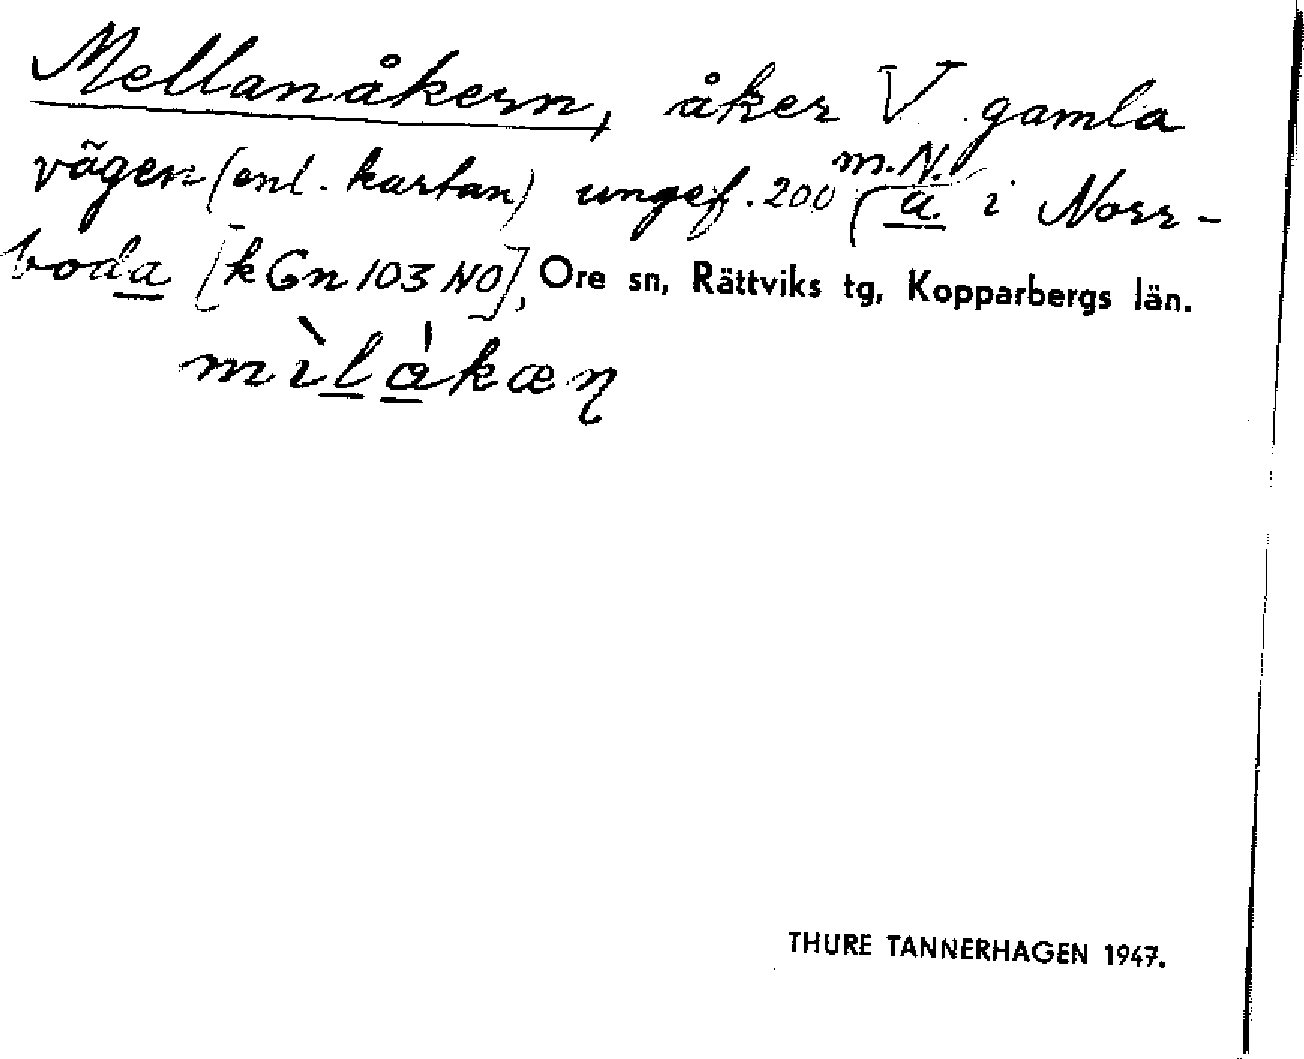 Mellanåkern, åker V gamla
vägen (enl. kartan) ungef. 200 m. N. a i Norr-
boda [k Gn 103 NO], Ore sn, Rättviks tg, Kopparbergs län.
mìlåkæn
THURE TANNERHAGEN 1947.